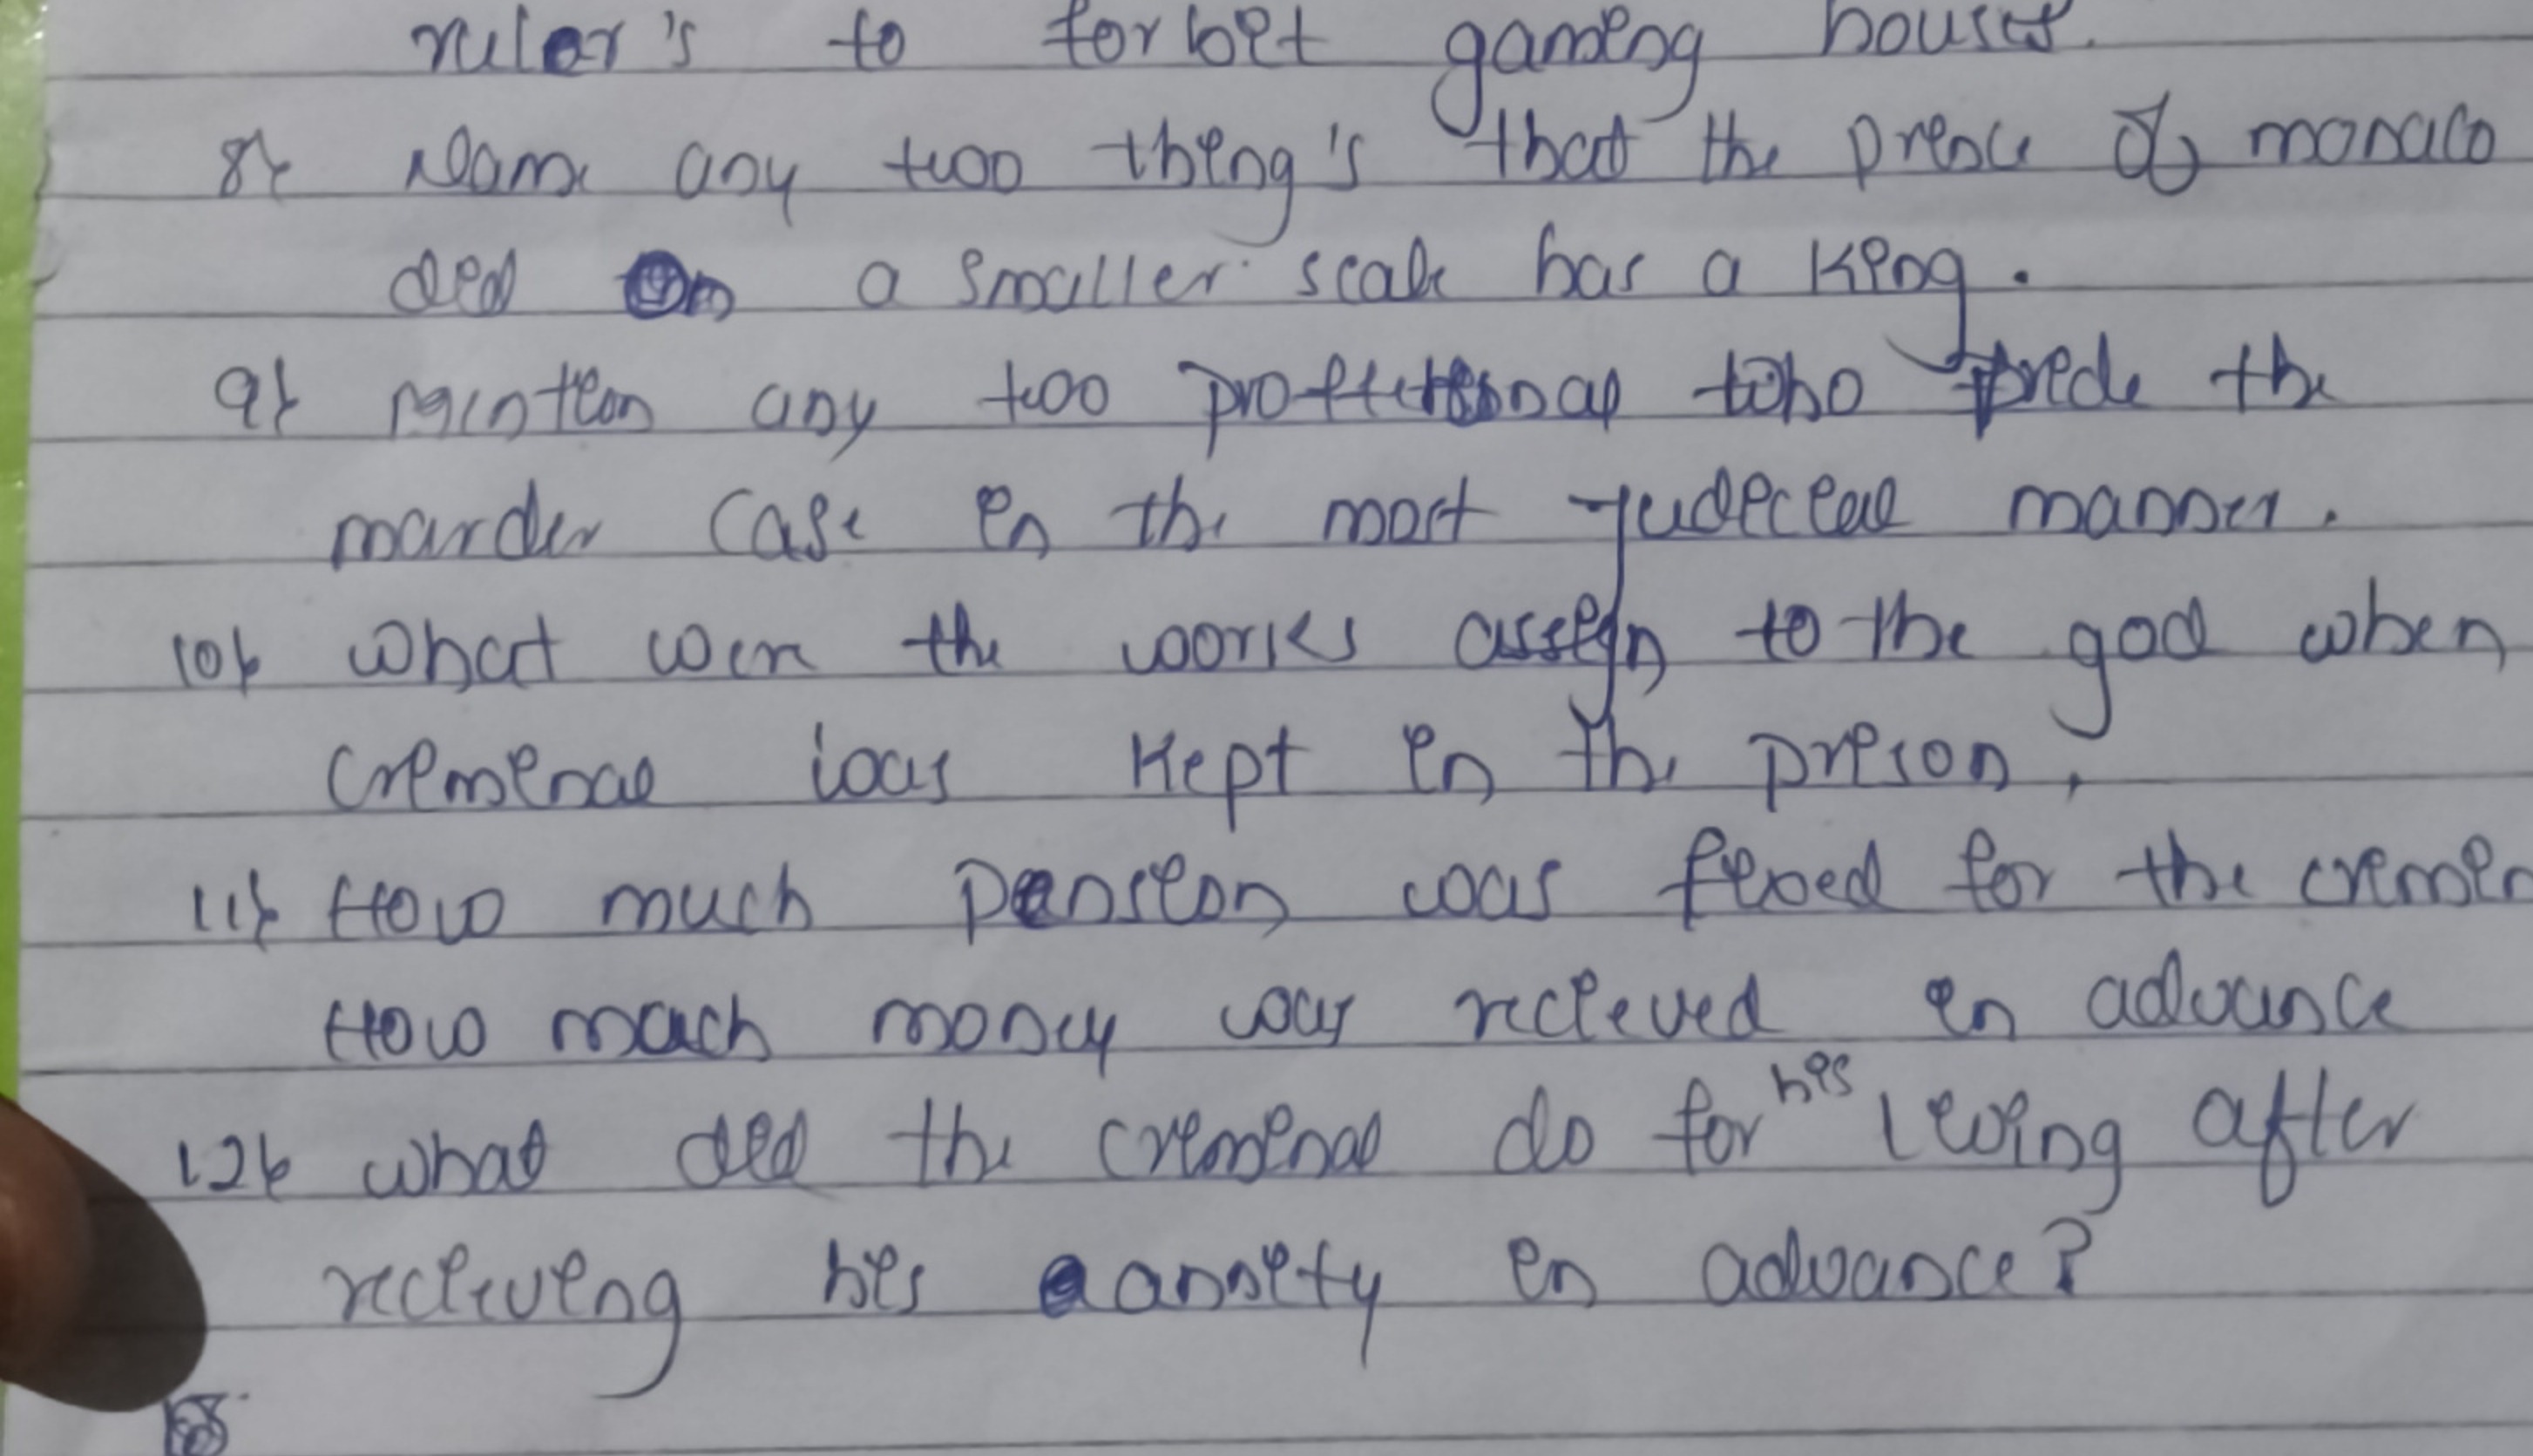 ruler's to forbit gaming houses.
8} Name any two thing's that the prince of monaco
did on a smaller scale has a King.
9} mention any two
marder case in the most judicial manner.
10} what were the works assign to the gad when
criminal was kept in the prison.
11} How much pension was fixed for the crimin
How mach money was recieved in advance
12} what did the criminal do for his living after
recieving his annity in advance?